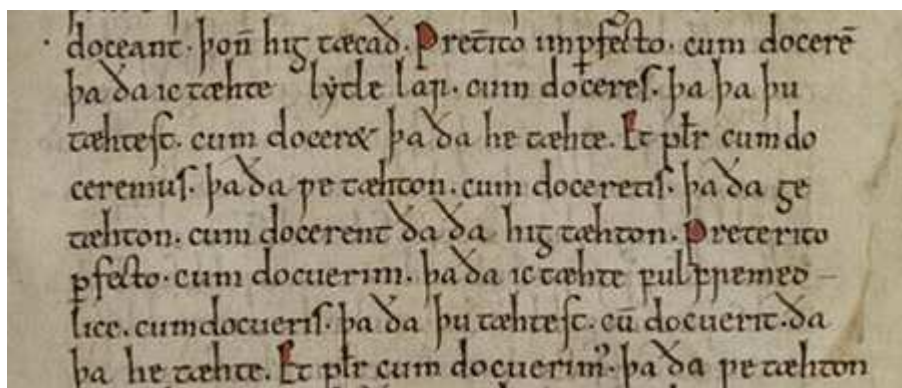 doceant · þoñ hig tæcað. Pret̄ito inꝑfecto. cum docerē
þa ða ic tæhte lẏtle læſ. cum doceres. þa þa þu
tæhtest. cum docer& þa ða he tæhte. Et płr cum do
ceremus. þa ða ƿe tæhton. cum doceretis. þa ða ge
tæhton. cum docerent ða ða hig tæhton. Preterito
ꝑfecto. cum docuerim. þa ða ic tæhte fulfremed
lice. cum docueris. þa ða þu tæhtest. cū docuerit. ða
þa he tæhte. Et płr cum docuerimꝰ. þa ða ƿe tæhton